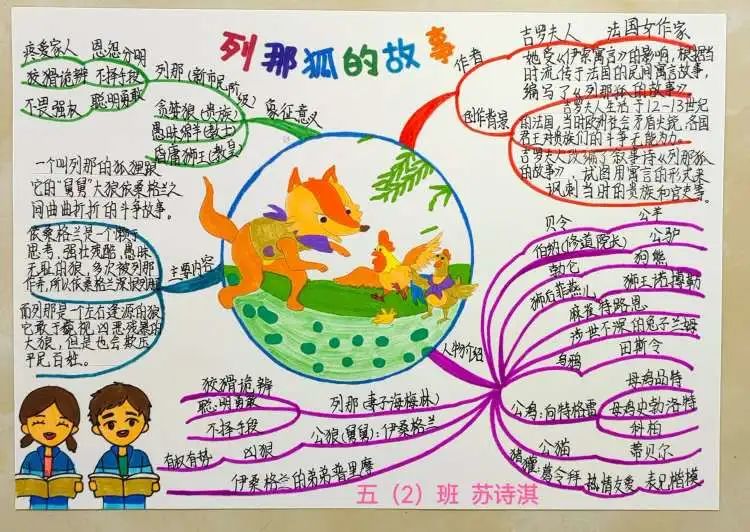 列那狐的故事
作者
吉罗夫人 法国女作家
她受《伊索寓言》的影响,根据当
时流传于法国的民间寓言故事,
编写了《列那狐的故事》。
创作背景
吉罗夫人生活于12-13世纪
的法国,当时欧洲社会矛盾尖锐,各国
君王对贵族们的斗争无能为力。
吉罗夫人改编了叙事诗《列那狐
的故事》,试图用寓言的形式来
讽刺当时的贵族和官吏等。
象征意义
疼爱家人 恩怨分明
狡猾诡辩 不择手段
不畏强权 聪明勇敢
列那(新市民阶级)
贪婪狼(贵族)
愚昧绵羊(教士)
昏庸狮王(教皇)
主要内容
一个叫列那的狐狸跟
它的“舅舅”大狼依桑格兰之
间曲曲折折的斗争故事。
依桑格兰是一个懒于
思考、强壮残酷、愚昧
无耻的狼,多次被列那
作弄,所以依桑格兰深恨列那
而列那是一个左右逢源的狼
它敢于藐视、凶恶残暴的
大狼,但是也会欺压
平民百姓。
人物介绍
贝令 公羊
伯纳(修道院长) 公驴
勃仑 狗熊
狮后菲燕儿 狮王诺博勒
麻雀特路恩
涉世不深的兔子兰姆
乌鸦 田斯令
公鸡:向特格雷
母鸡品特
母鸡史勃洛特
科柏
公猫 蒂贝尔
猪獾:葛令拜 热情友爱 表兄楷模
狡猾诡辩
聪明勇敢
不择手段
列那(妻子海梅林)
有权有势 凶狠 公狼(舅舅):伊桑格兰
伊桑格兰的弟弟普里摩
五(2)班 苏诗淇